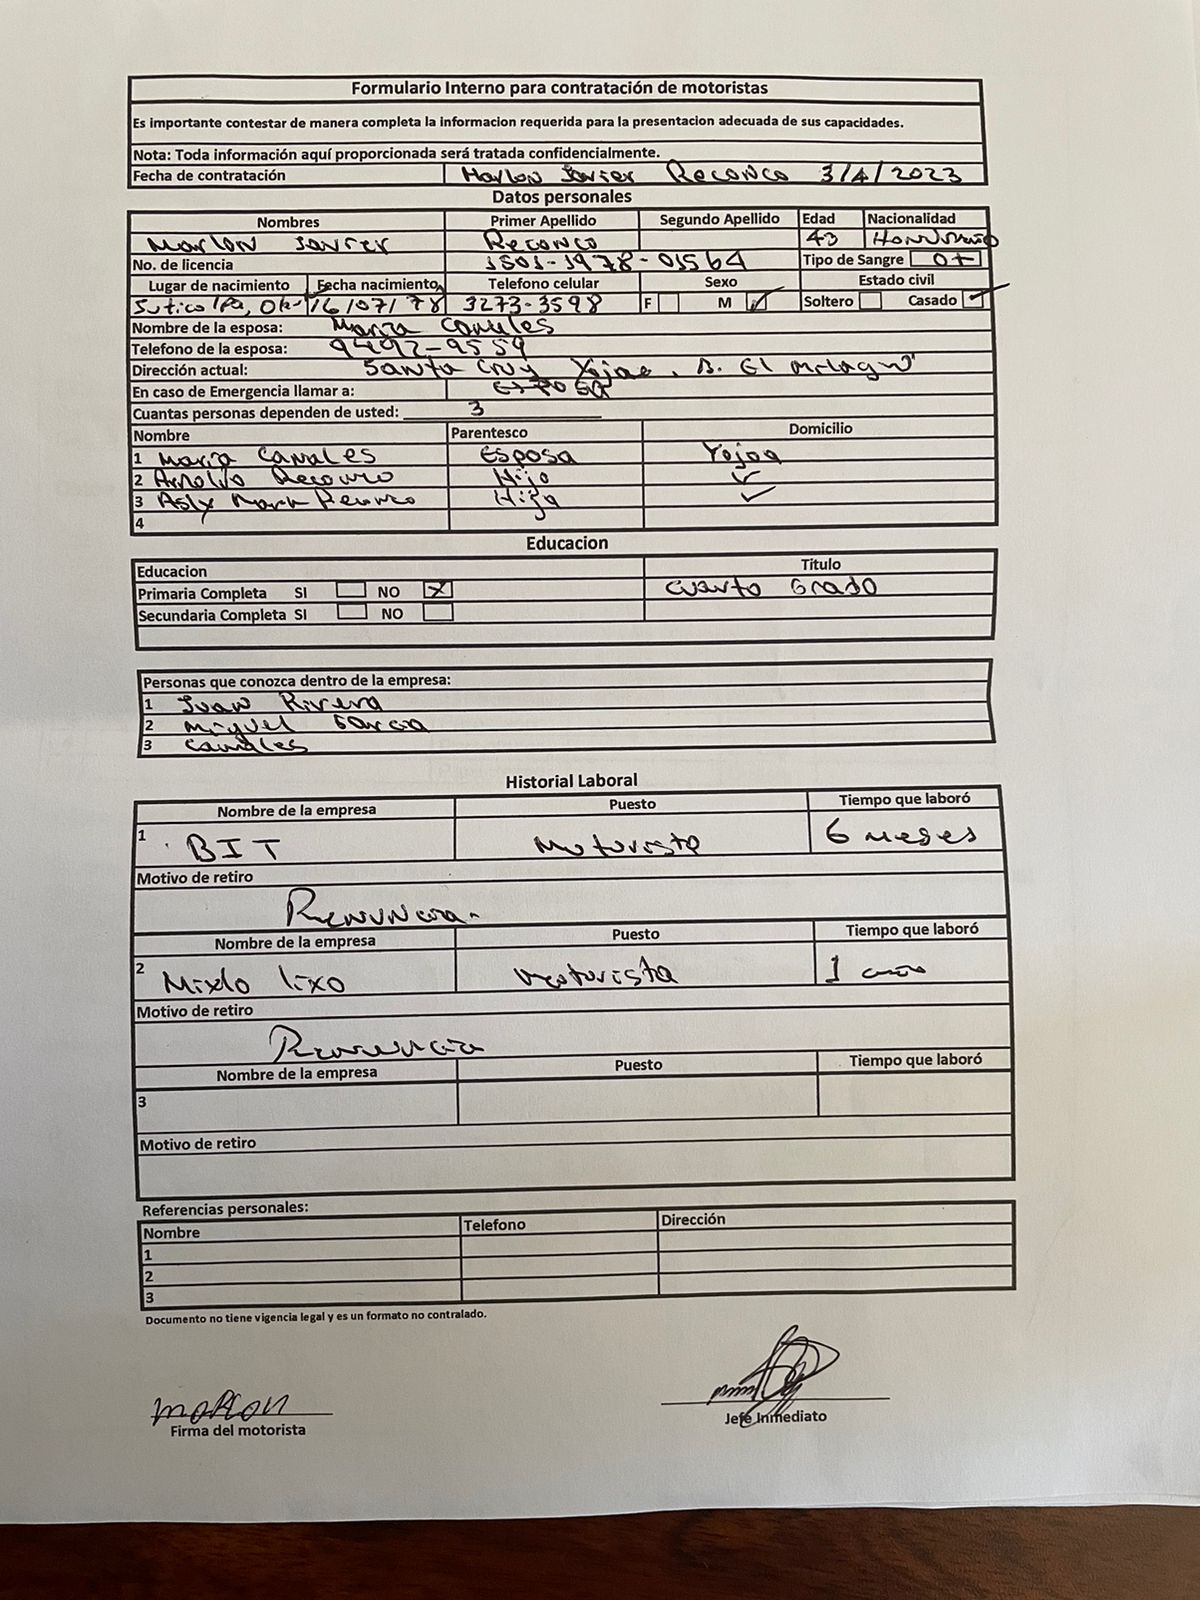 Formulario Interno para contratación de motoristas
Es importante contestar de manera completa la informacion requerida para la presentacion adecuada de sus capacidades.
Nota: Toda información aquí proporcionada será tratada confidencialmente.
Fecha de contratación Marlon Javier Reconco 3/4/2023
Datos personales
Nombres Primer Apellido Segundo Apellido Edad Nacionalidad
Marlon Javier Reconco 43 Hondureño
No. de licencia 1501-1978-01564 Tipo de Sangre O+
Lugar de nacimiento Fecha nacimiento Telefono celular Sexo Estado civil
16/07/78 3273-3598 F M Soltero Casado
Nombre de la esposa: Maria Canales
Telefono de la esposa: 9492-9559
Dirección actual: Santa Cruz Yojoa, B. El Milagro
En caso de Emergencia llamar a: Esposa
Cuantas personas dependen de usted: 3
Nombre Parentesco Domicilio
1 Maria Canales Esposa Yojoa
2 Arnoldo Reconco Hijo
3 Reconco Hija
4
Educacion
Educacion Titulo
Primaria Completa SI NO X Cuarto Grado
Secundaria Completa SI NO
Personas que conozca dentro de la empresa:
1 Juan Rivera
2 Miguel Garcia
3 Canales
Historial Laboral
Nombre de la empresa Puesto Tiempo que laboró
1 BIT Motorista 6 meses
Motivo de retiro
Renuncia.
Nombre de la empresa Puesto Tiempo que laboró
2 Mixto lixo Motorista 1 año
Motivo de retiro
Renuncia
Nombre de la empresa Puesto Tiempo que laboró
3
Motivo de retiro
Referencias personales:
Nombre Telefono Dirección
1
2
3
Documento no tiene vigencia legal y es un formato no contralado.
marlon
Firma del motorista Jefe Inmediato